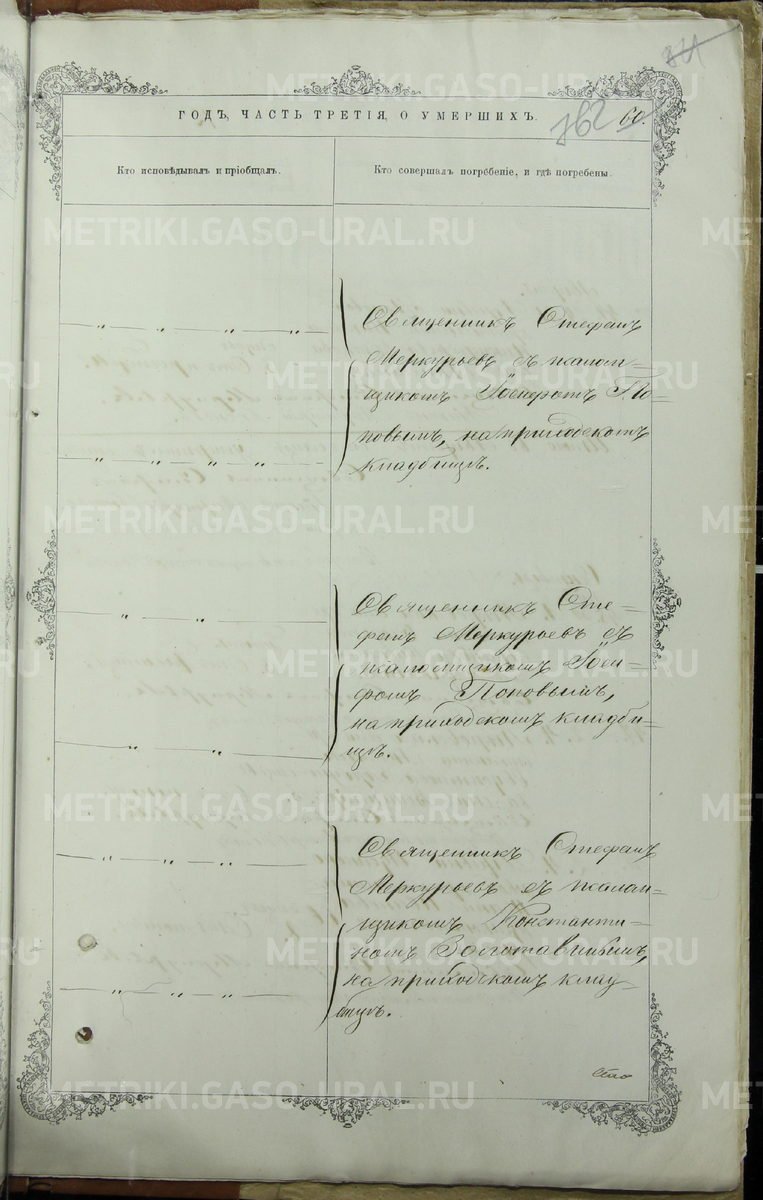 762 60.
ГОДЪ, ЧАСТЬ ТРЕТІЯ, О УМЕРШИХЪ.
Кто исповѣдывалъ и пріобщалъ.
Кто совершалъ погребеніе, и гдѣ погребены.
Священникъ Стефанъ
Меркурьевъ съ псалом-
щикомъ Іосифомъ По-
повымъ, на приходскомъ
кладбищѣ.
Священникъ Сте-
фанъ Меркурьевъ съ
псаломщикомъ Іоси-
фомъ Поповымъ,
на приходскомъ кладби-
щѣ.
Священникъ Стефанъ
Меркурьевъ съ псалом-
щикомъ Константи-
номъ
на приходскомъ клад-
бищѣ.
METRIKI.GASO-URAL.RU